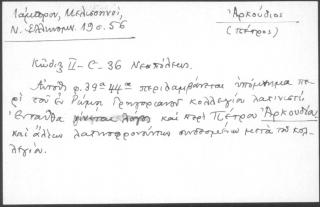 Λάμπρου, Μελισσηνοί,
Ν. Ἑλληνομν. 19ο. 56
Ἀρκούδιος
(πέτρος)
Κώδιξ ΙΙ-C-36 Νεαπόλεως.
Αὐτόθι φ. 39α 44α περιλαμβάνεται ὑπόμνημα πε-
ρὶ τοῦ ἐν Ῥώμῃ Γρηγοριανοῦ κολλεγίου λατινιστί,
ἐνταῦθα γίνεται λόγος καὶ περὶ Πέτρου Ἀρκουδίου
καὶ ἄλλων λατινοφρονούντων συνδεομένων μετὰ τοῦ κολ-
λεγίου.